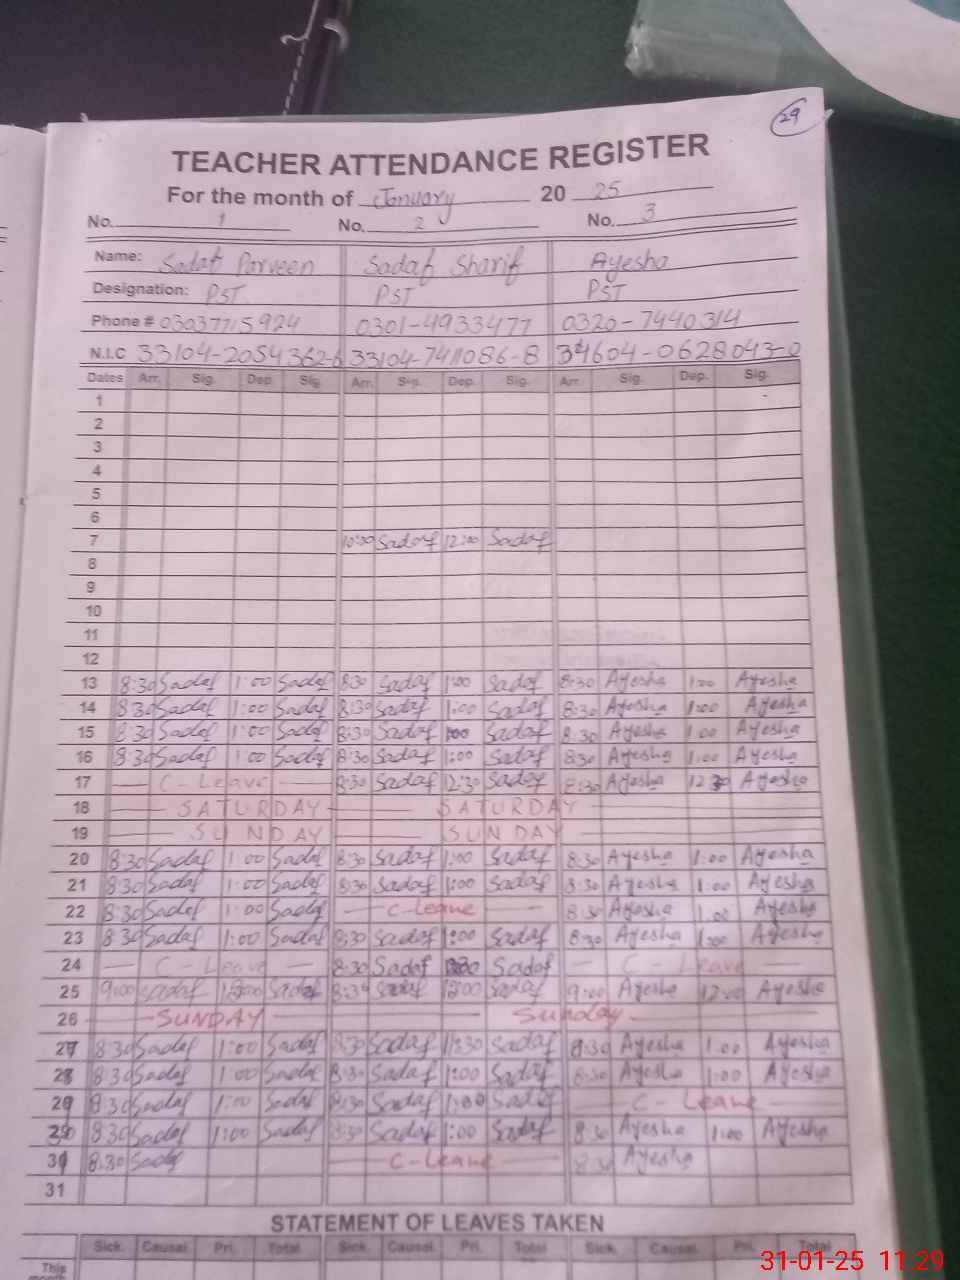 29
TEACHER ATTENDANCE REGISTER
For the month of January 20 25
No. 1 No. 2 No. 3
Name: Sadaf Parveen Sadaf Sharif Ayesha
Designation: PST PST PST
Phone # 03037715924 0301-4933477 0320-7440314
N.I.C 33104-2054362-6 33104-7411086-8 34604-0628043-0
Dates Arr. Sig. Dep. Sig. Arr. Sig. Dep. Sig. Arr. Sig. Dep. Sig.
1
2
3
4
5
6
7 10:30 Sadaf 12:00 Sadaf
8
9
10
11
12
13 8:30 Sadaf 1:00 Sadaf 8:30 Sadaf 1:00 Sadaf 8:30 Ayesha 1:00 Ayesha
14 8:30 Sadaf 1:00 Sadaf 8:30 Sadaf 1:00 Sadaf 8:30 Ayesha 1:00 Ayesha
15 8:30 Sadaf 1:00 Sadaf 8:30 Sadaf 1:00 Sadaf 8:30 Ayesha 1:00 Ayesha
16 8:30 Sadaf 1:00 Sadaf 8:30 Sadaf 1:00 Sadaf 8:30 Ayesha 1:00 Ayesha
17 C-Leave 8:30 Sadaf 12:30 Sadaf 8:30 Ayesha 12:30 Ayesha
18 SATURDAY SATURDAY
19 SUNDAY SUNDAY
20 8:30 Sadaf 1:00 Sadaf 8:30 Sadaf 1:00 Sadaf 8:30 Ayesha 1:00 Ayesha
21 8:30 Sadaf 1:00 Sadaf 8:30 Sadaf 1:00 Sadaf 8:30 Ayesha 1:00 Ayesha
22 8:30 Sadaf 1:00 Sadaf C-Leave 8:30 Ayesha 1:00 Ayesha
23 8:30 Sadaf 1:00 Sadaf 8:30 Sadaf 1:00 Sadaf 8:30 Ayesha 1:00 Ayesha
24 C-Leave 8:30 Sadaf Sadaf C-Leave
25 9:00 Sadaf 12:00 Sadaf Sadaf 12:00 Sadaf 9:00 Ayesha 12:00 Ayesha
26 SUNDAY Sunday
27 8:30 Sadaf 1:00 Sadaf 8:30 Sadaf 11:30 Sadaf 8:30 Ayesha 1:00 Ayesha
28 8:30 Sadaf 1:00 Sadaf 8:30 Sadaf 1:00 Sadaf 8:30 Ayesha 1:00 Ayesha
8:30 Sadaf 1:00 Sadaf 8:30 Sadaf 1:00 Sadaf C-Leave
8:30 Sadaf 1:00 Sadaf 8:30 Sadaf 1:00 Sadaf 8:30 Ayesha 1:00 Ayesha
8:30 Sadaf C-Leave 8:30 Ayesha
31
STATEMENT OF LEAVES TAKEN
Sick. Causal. Pri. Total Sick. Causal. Pri. Total Sick. Causal. Pri. Total
This month
31-01-25 11:29